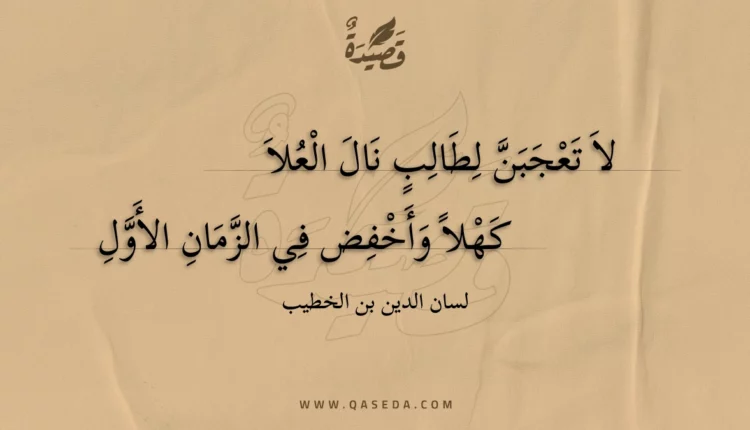 قَصِيْدَةٌ
لاَ تَعْجَبَنَّ لِطَالِبٍ نَالَ الْعُلاَ
كَهْلاً وَأَخْفِض فِي الزَّمَانِ الأَوَّلِ
لسان الدين بن الخطيب
WWW.QASEDA.COM